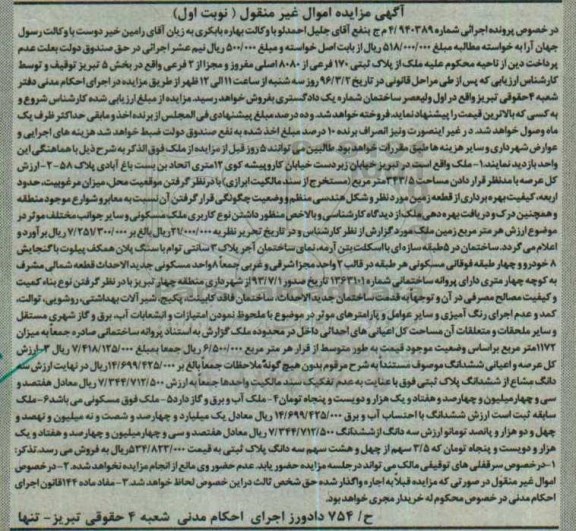 آگهی مزایده اموال غیر منقول ( نوبت اول)
در خصوص پرونده اجرائی شماره ۹۴۰۳۸۹/ ۴ م ج بنفع آقای جلیل احمدلو با وکالت بهاره بابکری به زیان آقای رامین خیر دوست با وکالت رسول
جهان آرا به خواسته مطالبه مبلغ ۵۱۸/۰۰۰/۰۰۰ ریال از بابت اصل خواسته و مبلغ ۵۰۰/۰۰۰ ریال نیم عشر اجرائی در حق صندوق دولت بعلت عدم
پرداخت دین از ناحیه محکوم علیه ملک از پلاک ثبتی ۱۷۰ فرعی از ۸۰۸۰ اصلی مفروز و مجزا از ۲ فرعی واقع در بخش ۵ تبریز توقیف و توسط
کارشناس ارزیابی که پس از طی مراحل قانونی در تاریخ ۹۶/۳/۲ روز سه شنبه از ساعت ۱۱ الی ۱۲ ظهر از طریق مزایده در اجرای احکام مدنی دفتر
شعبه ۴ حقوقی تبریز واقع در اول ولیعصر ساختمان شماره یک دادگستری بفروش خواهد رسید. مزایده از مبلغ ارزیابی شده کارشناس شروع و
به کسی که بالاترین قیمت را پیشنهاد نماید، فروخته خواهد شد. و ده درصد مبلغ پیشنهادی فی المجلس از برنده اخذ و مابقی حداکثر ظرف یک
ماه وصول خواهد شد. در غیر اینصورت ونیز انصراف برنده ۱۰ درصد مبلغ اخذ شده به نفع صندوق دولت ضبط خواهد شد هزینه های اجرایی و
عوارض شهرداری و سایر هزینه ها طبق مقررات خواهد بود. طالبین می توانند ۵ روز قبل از مزایده از ملک فوق الذکر به شرح ذیل با هماهنگی این
واحد بازدید نمایند: ۱- ملک واقع است در تبریز خیابان زبردست خیابان کاروپیشه کوی ۱۲ متری اتحاد بن بست باغ آبادی پلاک ۵۸ – ۲- ارزش
کل عرصه با مدنظر قرار دادن مساحت ۳۳۲/۵ متر مربع (مستخرج از سند مالکیت ابرازی) با در نظر گرفتن موقعیت محل، میزان مرغوبیت، حدود
اربعه، کیفیت بهره برداری از قطعه زمین مورد نظر و شکل هندسی منظم و وضعیت چگونگی قرار گرفتن آن نسبت به معابر و شوارع موجود منطقه
و همچنین درک و دریافت بهره دهی ملک از دیدگاه کارشناسی و بالاخص منظور داشتن نوع کاربری ملک مسکونی و سایر جوانب مختلف موثر در
موضوع ارزش هر متر مربع زمین ملک مورد گزارش از نظر کارشناس و در تاریخ تحریر نظریه ۲۱/۰۰۰/۰۰۰ ریال بالغ بر ۷/۲۵۱/۳۰۰/۰۰۰ ریال برآورد و
اعلام می گردد. ساختمان در ۵ طبقه سازه ای با اسکلت بتن آرمه، نمای ساختمان آجر پلاک ۳ سانتی توام با سنگ پلان همکف پیلوت با گنجایش
۸ خودرو و چهار طبقه فوقانی مسکونی هر طبقه در قالب ۲ واحد مجزا شرقی و غربی جمعاً ۸ واحد مسکونی جدید الاحداث قطعه شمالی مشرف
به کوچه چهار متری دارای پروانه ساختمانی شماره ۱۳۴۳۱۰۱ تاریخ صدور ۹۳/۷/۱ از شهرداری منطقه چهار تبریز با در نظر گرفتن نوع بناء کمیت
و کیفیت مصالح مصرفی در آن و توجهاً به قدمت ساختمان جدید الاحداث ساختمان فاقد کابینت، پکیج، شیر آلات بهداشتی، روشویی، توالت،
کمد و عدم اجرای رنگ آمیزی و سایر عوامل و پارامترهای موثر در موضوع با ملحوظ نمودن امتیازات و انشعابات آب، برق و گاز شهری مستقل
و سایر ملحقات و متعلقات آن مساحت کل اعیانی های احداثی داخل در محدوده ملک گزارش به استناد پروانه ساختمانی صادره جمعاً به میزان
۱۱۷۲ متر مربع براساس وضعیت موجود قیمت به طور متوسط از قرار هر متر مربع ۶/۵۰۰/۰۰۰ ریال جمعا بمبلغ ۷/۴۱۸/۱۲۵/۰۰۰ ریال ۳- ارزش
کل عرصه و اعیانی ششدانگ موصوف مستنداً به شرح مرقوم بدون هیچ گونه ملاحظات جمعاً بالغ بر ۱۴/۶۹۹/۴۲۵/۰۰۰ ریال در نهایت ارزش سه
دانگ مشاع از ششدانگ پلاک ثبتی فوق با عنایت به عدم تفکیک سند مالکیت واحدها جمعاً به ارزش ۷/۳۴۴/۷۱۲/۵۰۰ ریال معادل هفتصد و
سی و چهار میلیون و چهارصد و هفتاد و یک هزار و دویست و پنجاه تومان ۴- ملک آب و برق و گاز دارد ۵- ملک فوق مسکونی می باشد ۶- ملک
سابقه ثبت است ارزش ششدانگ با احتساب آب و برق ۱۴/۶۹۹/۴۲۵/۰۰۰ ریال معادل یک میلیارد و چهارصد و شصت و نه میلیون و نهصد و
چهل و دو هزار و پانصد تومانو ارزش سه دانگ از ششدانگ ۷/۳۴۴/۷۱۲/۵۰۰ ریال معادل هفتصد و سی و چهار میلیون و چهارصد و هفتاد و یک
هزار و دویست و پنجاه تومان که ۳/۵ سهم از چهل و هشت سهم سه دانگ پلاک ثبتی به قیمت ۵۳۴/۸۲۳/۰۰۰ ریال به فروش می رسد. تذکر:
۱- در خصوص سرقفلی های توقیفی مالک می تواند در جلسه مزایده حضور یابد. عدم حضور وی مانع از انجام مزایده نخواهد شد. ۲- در خصوص
اموال غیر منقول در صورتی که مزایده قبلاً به اجاره واگذار شده حق شخص ثالث در این خصوص لحاظ خواهد شد. ۳- مفاد ماده ۱۴۴ قانون اجرای
احکام مدنی در خصوص محکوم له خریدار مجری خواهد بود.
ح/ ۷۵۴ دادورز اجرای احکام مدنی شعبه ۴ حقوقی تبریز- تنها